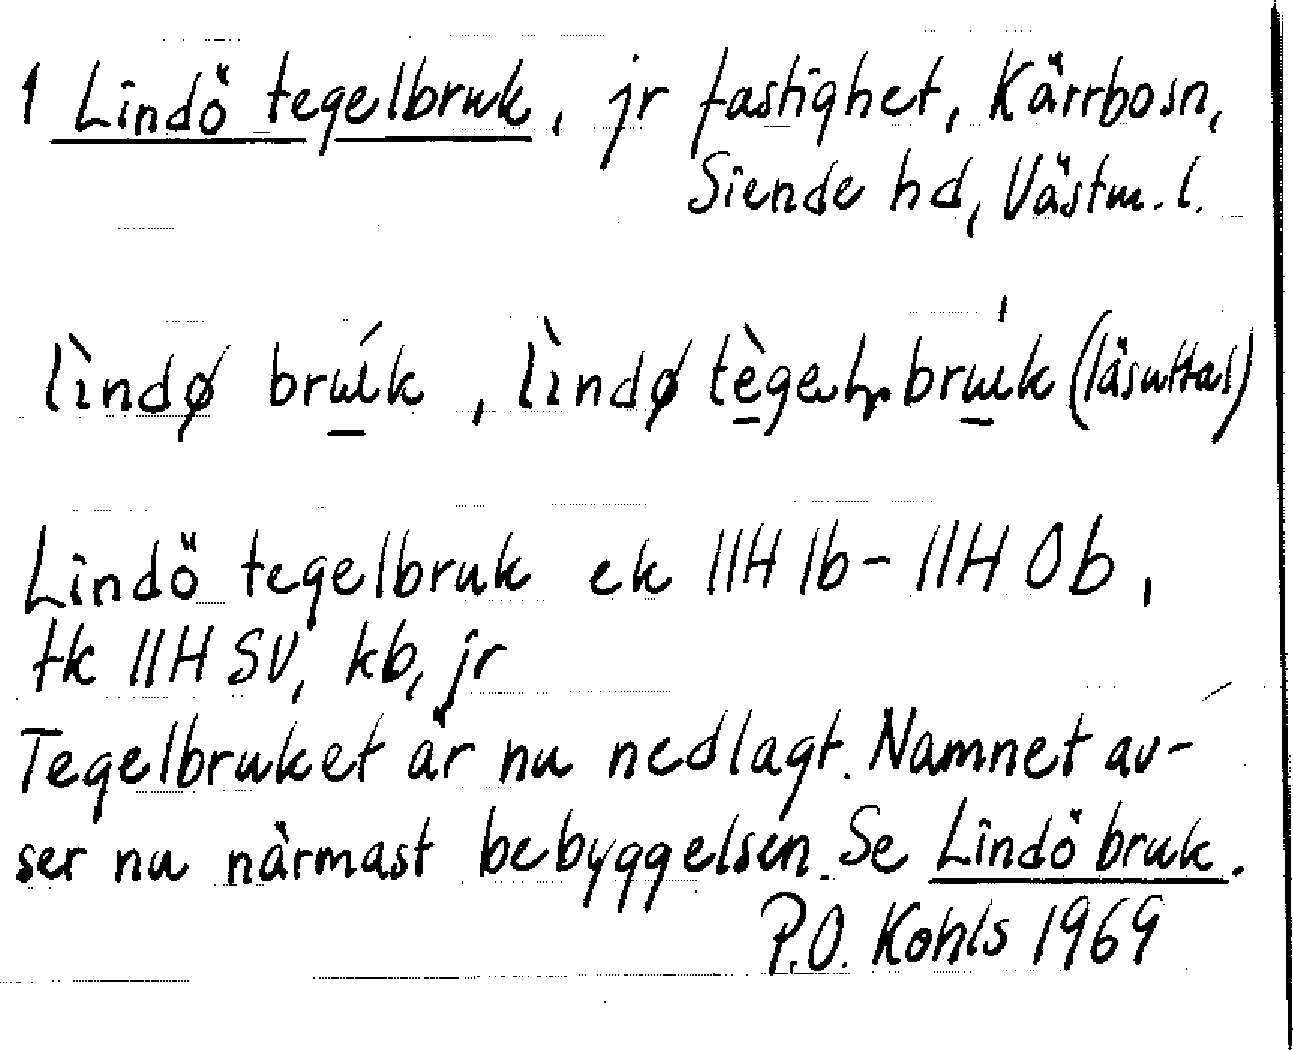 1 Lindö tegelbruk, jr fastighet, Kärrbosn,
Siende hd, Västm. l.
lìndø brɯ́k, lìndø tègəl brɯ́k (läsuttal)
Lindö tegelbruk ek 11H 1b - 11H 0b,
tk 11H SV, kb, jr
Tegelbruket är nu nedlagt. Namnet av-
ser nu närmast bebyggelsen. Se Lindö bruk.
P.O. Kohls 1969